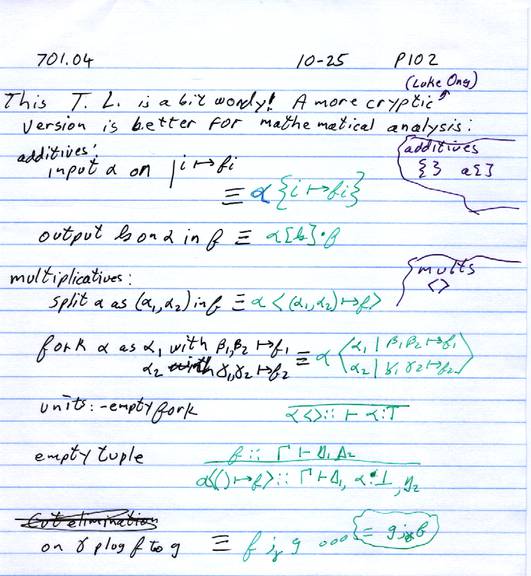 701.04 10-25 P102
(Luke Ong)
This T. L. is a bit wordy! A more cryptic
version is better for mathematical analysis:
additives:
input α on | i ↦ fi
≡ α {i ↦ fi}
additives
{ } a[ ]
output b on α in f ≡ α[b]·f
multiplicatives:
split α as (α₁,α₂) in f ≡ α <(α₁,α₂) ↦ f>
mults
<>
fork α as α₁ with β₁,β₂ ↦ f₁
α₂ with γ₁,γ₂ ↦ f₂
≡ α < α₁ | β₁ β₂ ↦ f₁
α₂ | γ₁ γ₂ ↦ f₂ >
units: - empty fork α<> :: ⊢ α:T
empty tuple f :: Γ ⊢ Δ₁ Δ₂
α<() ↦ f> :: Γ ⊢ Δ₁, α:⊥, Δ₂
Cut elimination
on γ plug f to g ≡ f ;γ g = g ;γ f